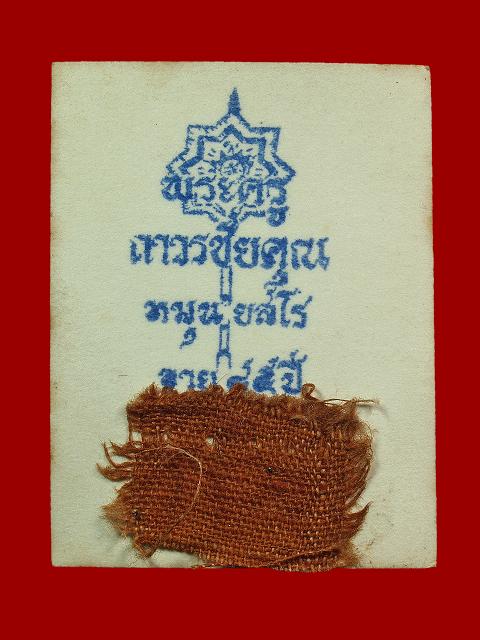 พระครู
ถาวรชัยคุณ
หมุน ยสโร
อายุ ๘๕ ปี